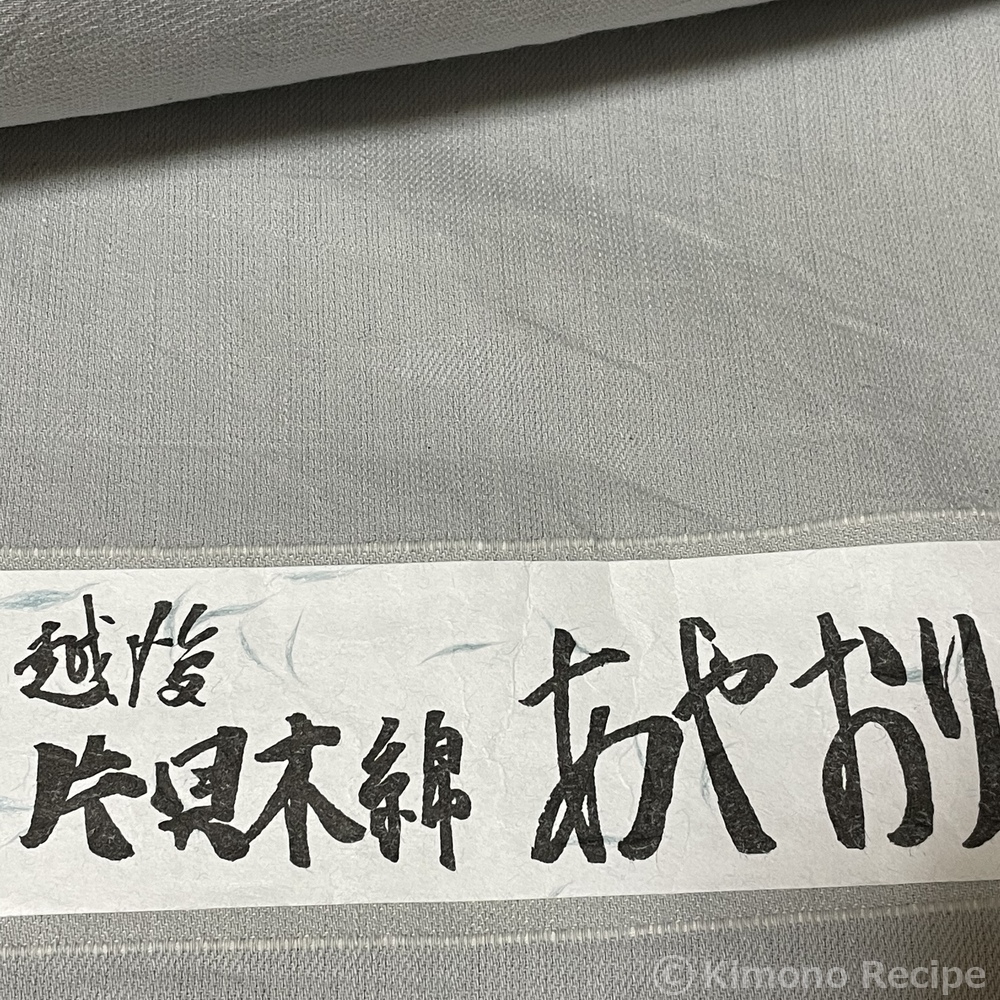 越後
片貝木綿
あやおり
©Kimono Recipe